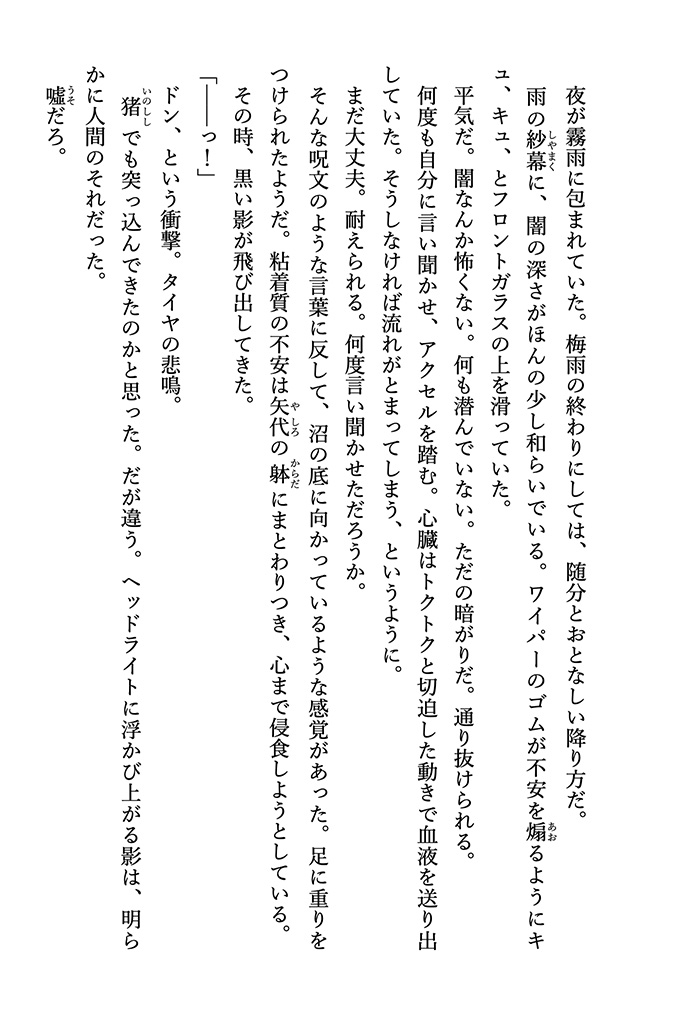 夜が霧雨に包まれていた。梅雨の終わりにしては、随分とおとなしい降り方だ。
雨の紗幕に、闇の深さがほんの少し和らいでいる。ワイパーのゴムが不安を煽るようにキ
ュ、キュ、とフロントガラスの上を滑っていた。
平気だ。闇なんか怖くない。何も潜んでいない。ただの暗がりだ。通り抜けられる。
何度も自分に言い聞かせ、アクセルを踏む。心臓はトクトクと切迫した動きで血液を送り出
していた。そうしなければ流れがとまってしまう、というように。
まだ大丈夫。耐えられる。何度言い聞かせただろうか。
そんな呪文のような言葉に反して、沼の底に向かっているような感覚があった。足に重りを
つけられたようだ。粘着質の不安は矢代の躰にまとわりつき、心まで侵食しようとしている。
その時、黒い影が飛び出してきた。
「――っ！」
ドン、という衝撃。タイヤの悲鳴。
猪でも突っ込んできたのかと思った。だが違う。ヘッドライトに浮かび上がる影は、明ら
かに人間のそれだった。
嘘だろ。